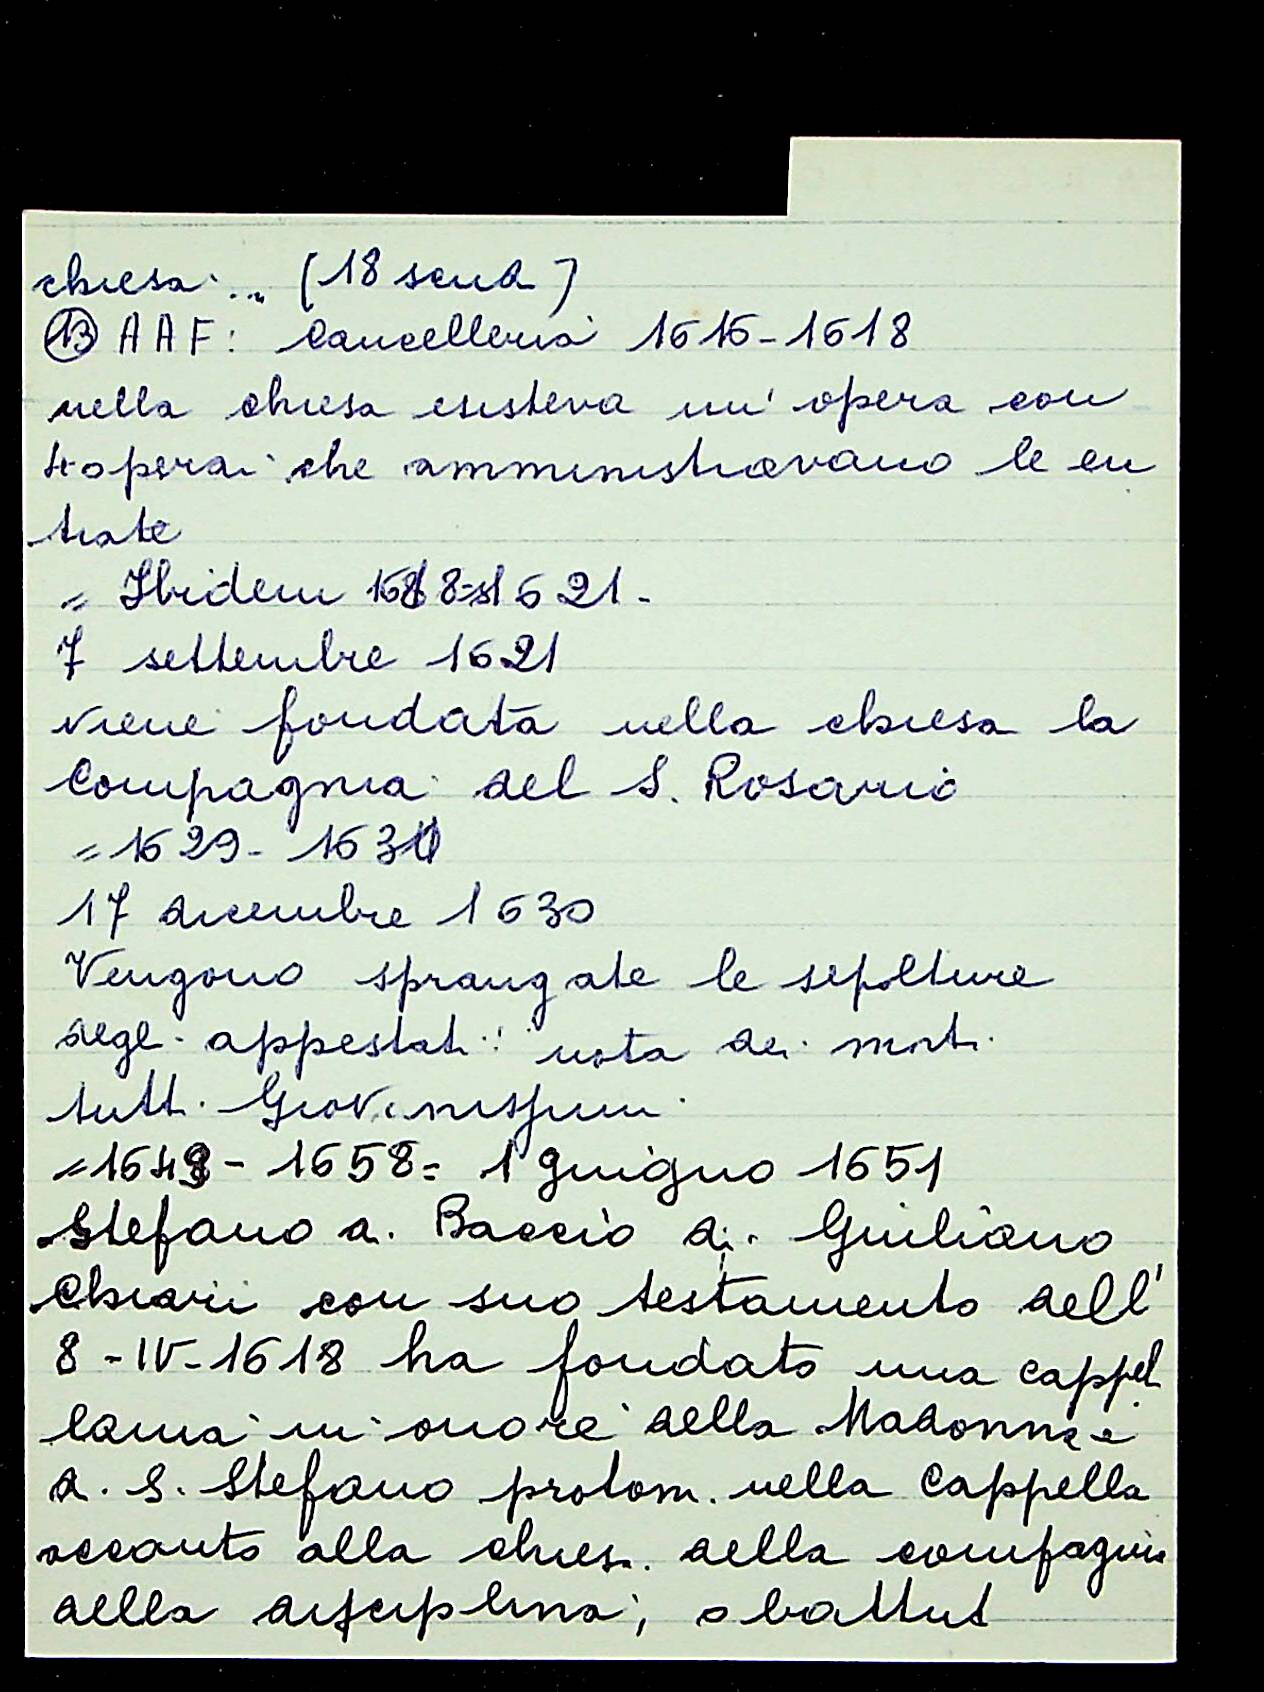 chiesa... (18 scudi)
13 AAF: Cancelleria 1616-1618
nella chiesa esisteva un'opera con
4 operai che amministravano le en
trate
= Ibidem 1618-1621-
7 settembre 1621
viene fondata nella chiesa la
Compagnia del S. Rosario
= 1629-1631
17 dicembre 1630
Vengono sprangate le sepolture
degli appestati: nota dei morti
tutti Giovinispini
= 1648-1658= 1 giugno 1651
Stefano di Baccio di Giuliano
Chiari con suo testamento dell'
8-IV-1618 ha fondato una cappel
lania in onore della Madonna e
di S. Stefano protom. nella Cappella
accanto alla chiesa della compagnia
della disciplina, o battuti